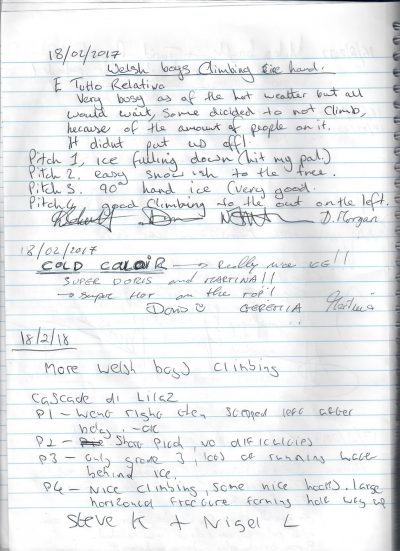 18/02/2017
Welsh boys Climbing Fire hand.
E Tutto Relativo
Very busy as of the hot weatter but all
would wait, Some dicided to not Climb,
because of the amount of people on it.
It didnt put us off!
Pitch 1, ice falling down (hit my pal.)
Pitch 2. easy snow ish to the tree.
Pitch 3. 90° hand ice (very good.
Pitch 4 good Climbing to the out on the left.
D. Morgan
18/02/2017
COLD COLOIR → Really nice ICE!!
SUPER DORIS and MARTINA!!
→ Super Hot on the top!
Doris GEREMIA Martina
18/2/18
More Welsh boys Climbing
Cascade di Lilaz
P1 - Went right then stepped left after
P2 - Short Pitch, no difficulties
P3 - only grade 3, lots of running water
behind ice.
P4 - Nice climbing, some nice hooks. large
horizontal fracture forming half way up
Steve K + Nigel L